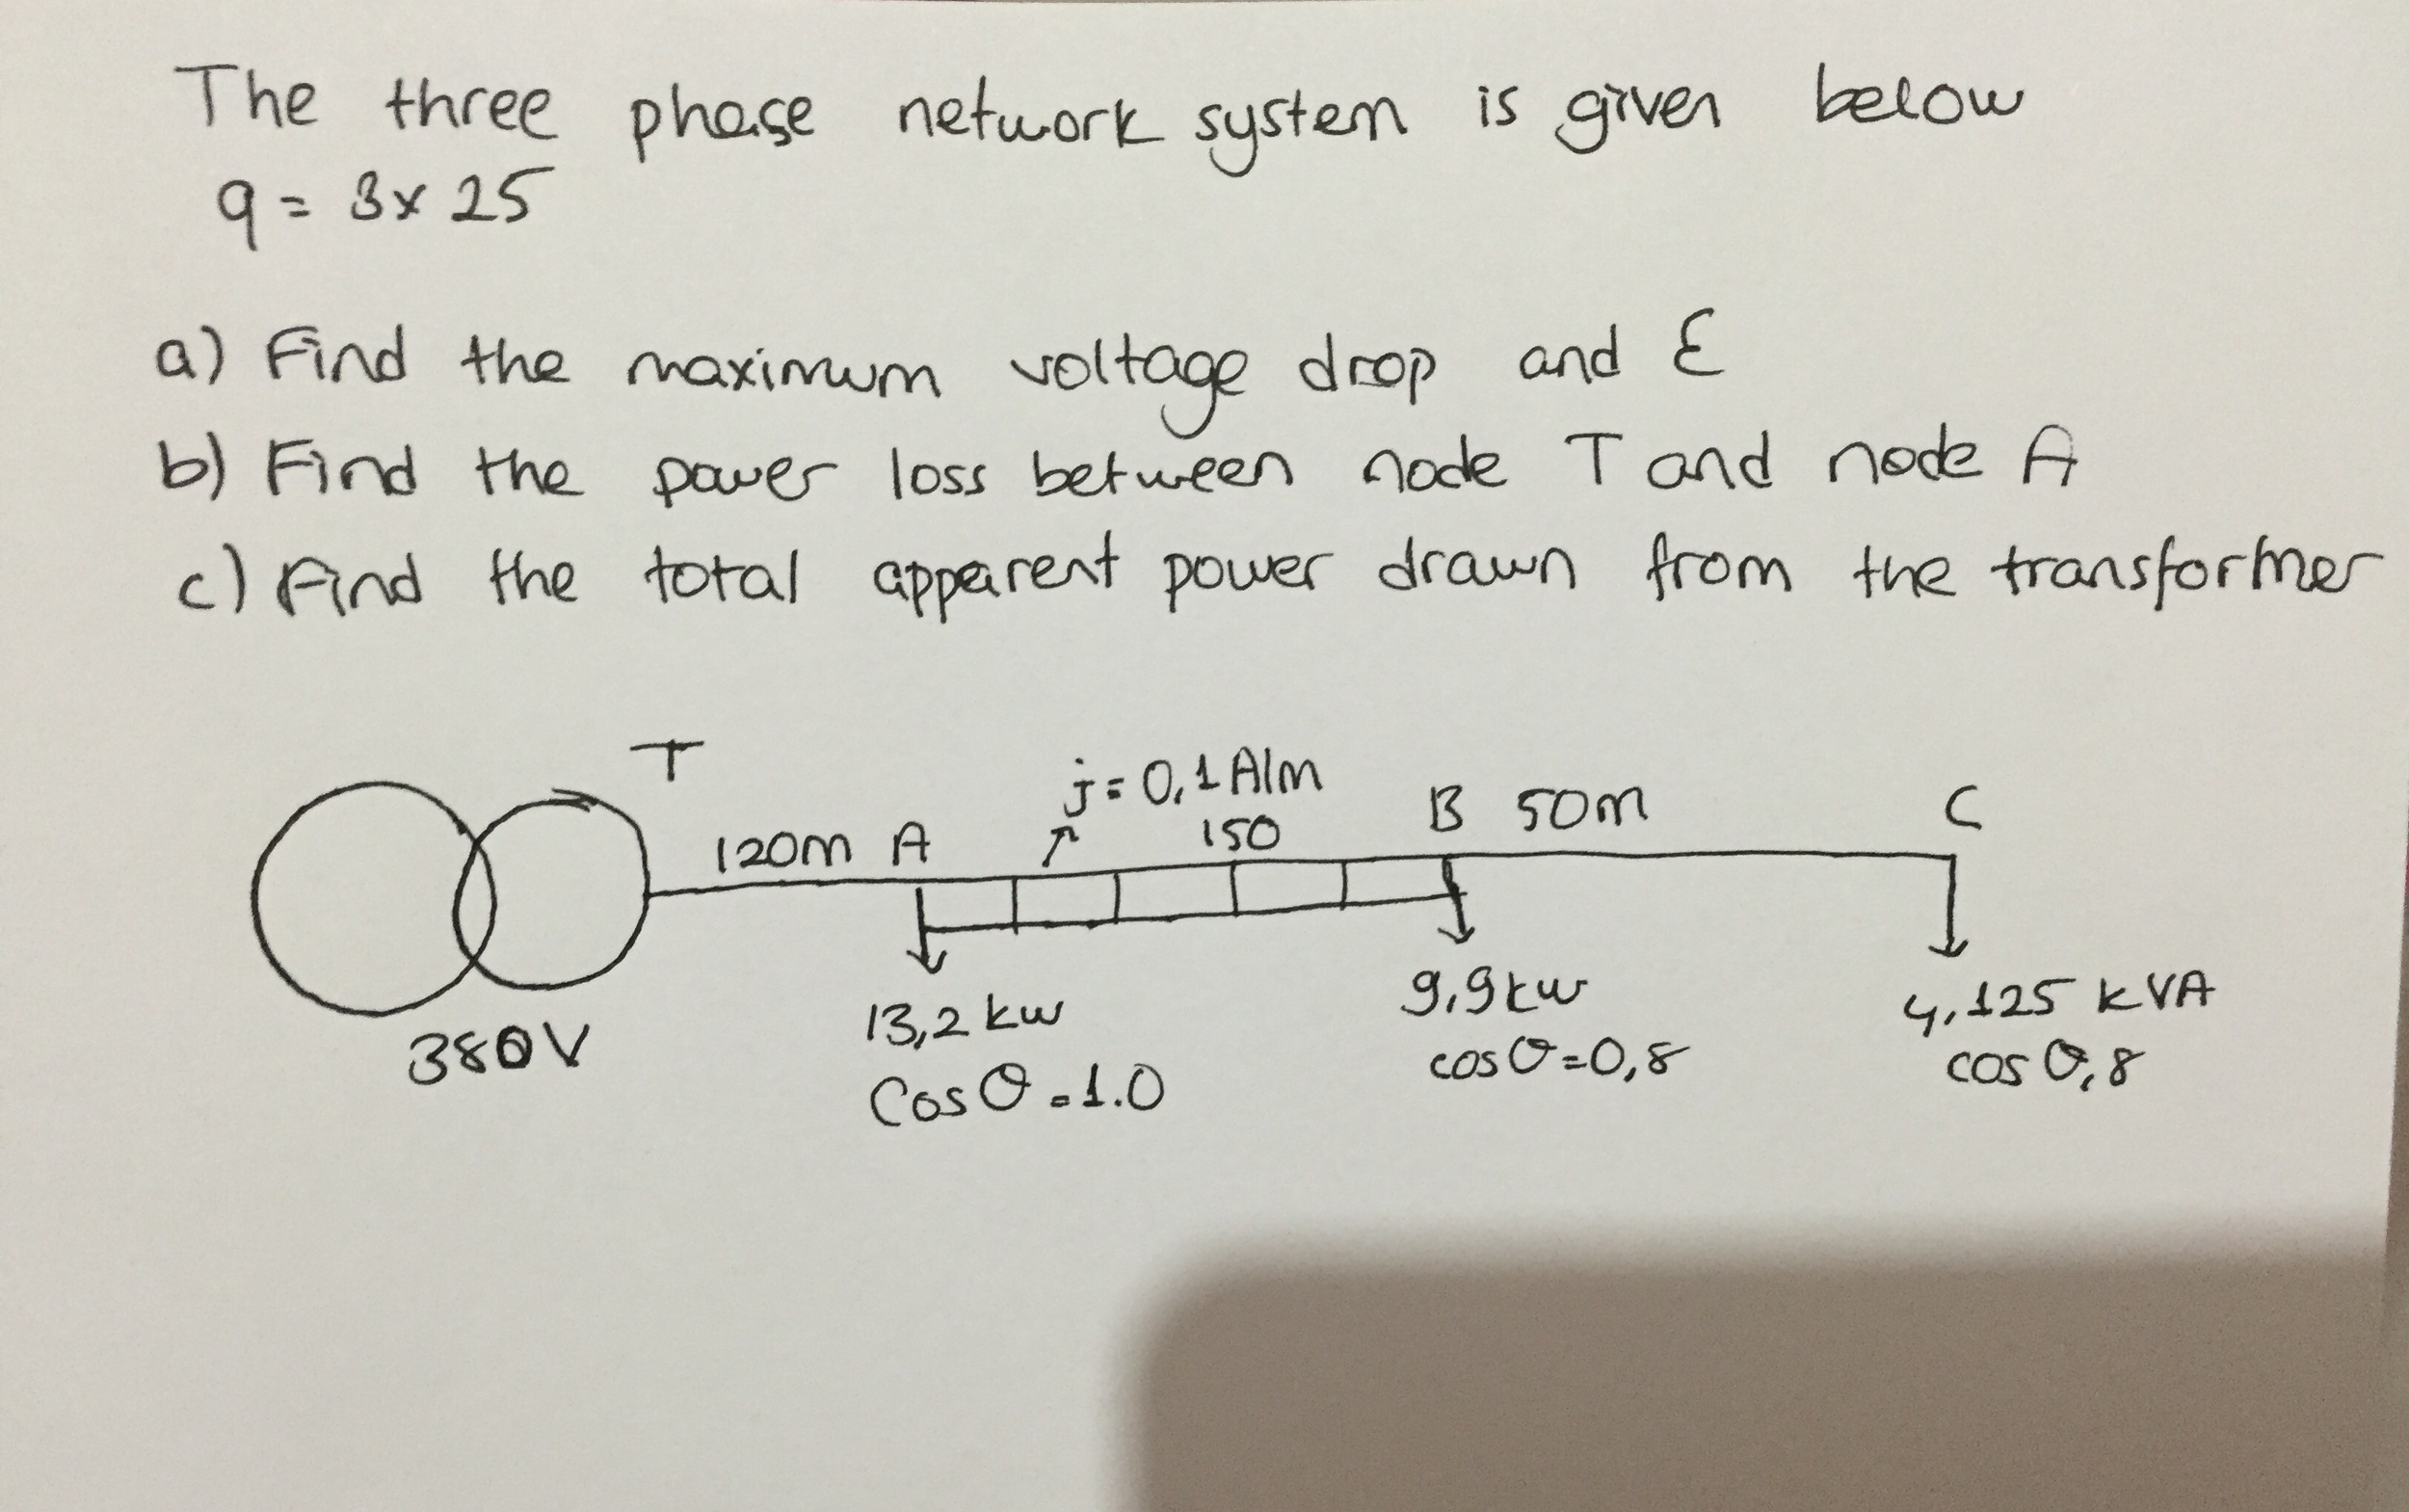 The three phase network system is given below
q = 3x 25
a) Find the maximum voltage drop and Ɛ
b) Find the power loss between node T and node A
c) Find the total apparent power drawn from the transformer
T
j = 0,1 A/m
120m A 150 B 50m C
380V
13,2 kw
Cos θ = 1.0
9,9 kw
cos θ = 0,8
4,125 kVA
cos 0,8